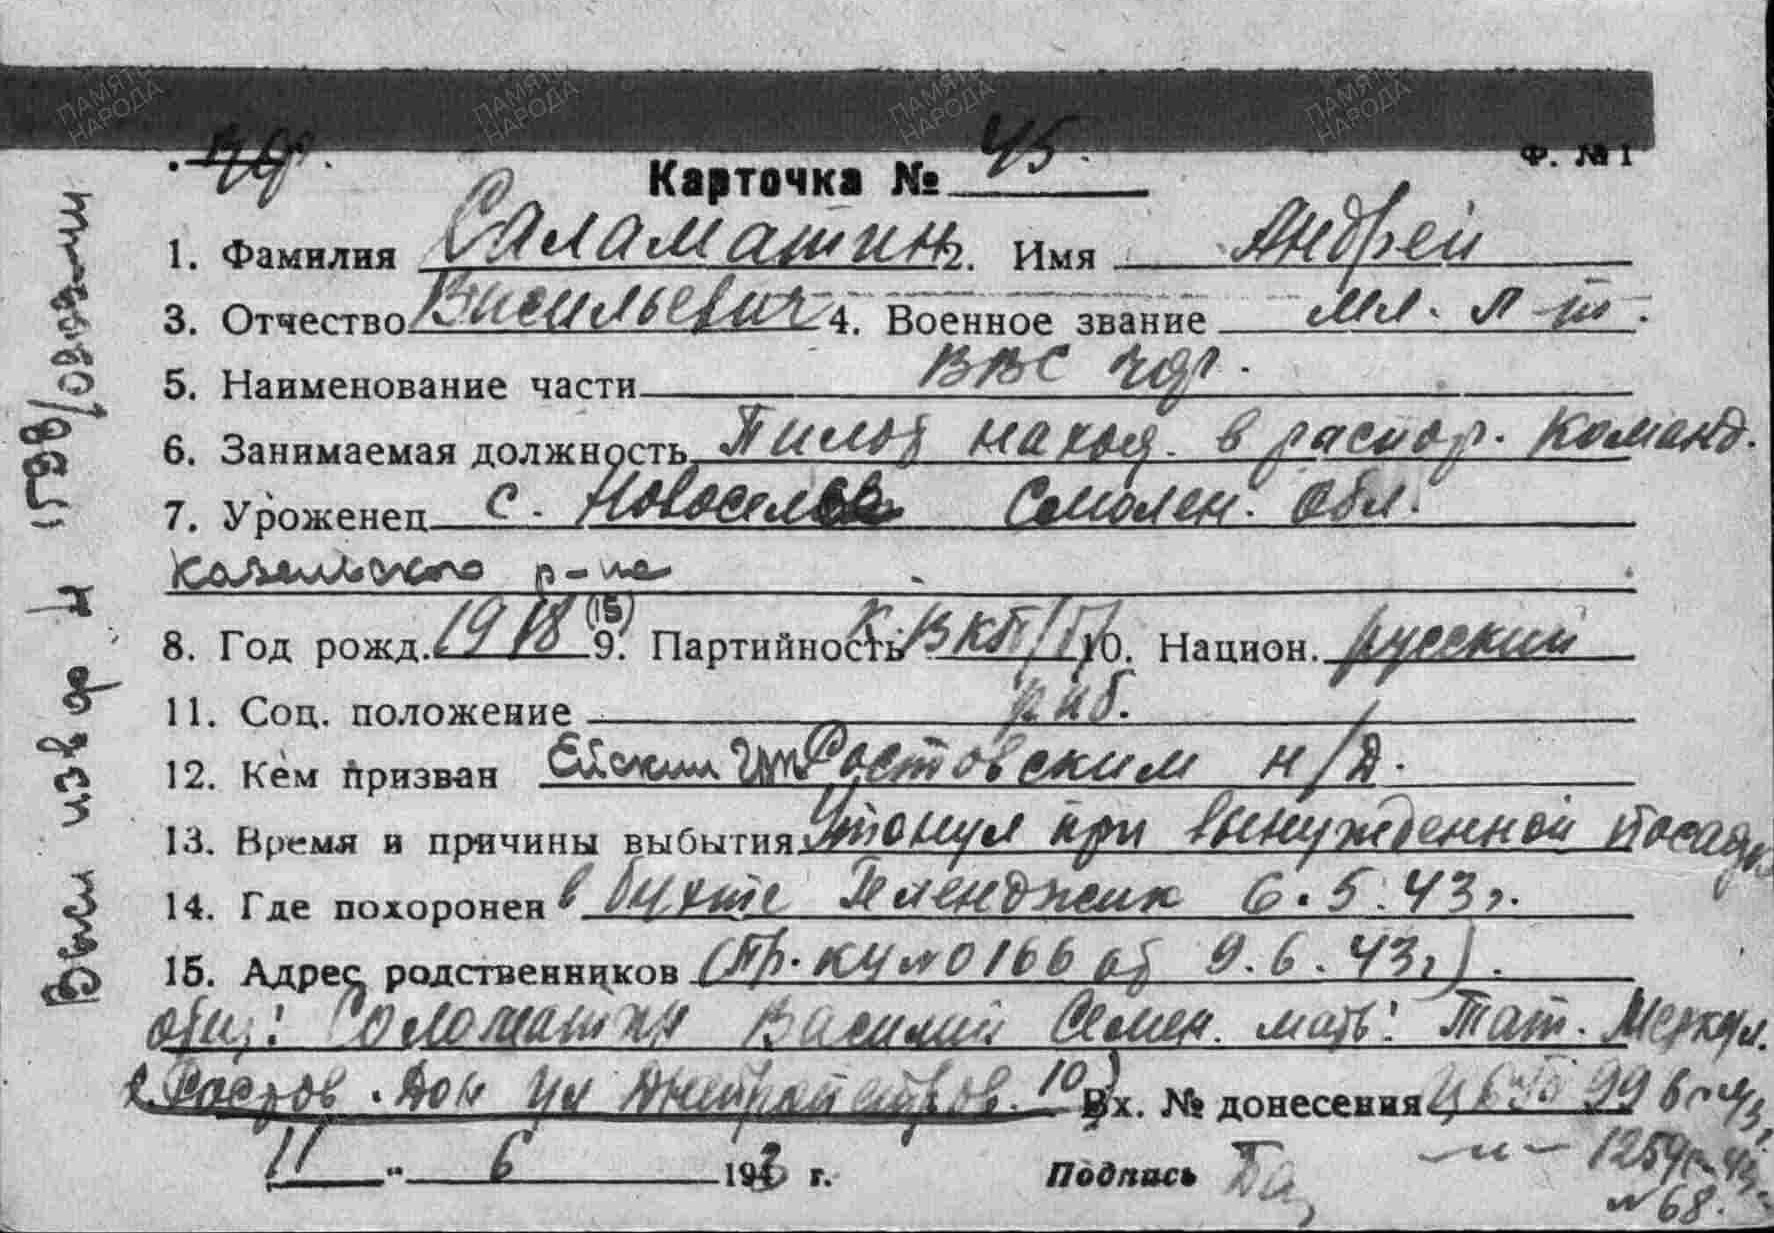 ПАМЯТЬ НАРОДА ПАМЯТЬ НАРОДА ПАМЯТЬ НАРОДА ПАМЯТЬ НАРОДА
чф.
Карточка № 45. Ф. № 1
1. Фамилия Саламатин 2. Имя Андрей
3. Отчество Васильевич 4. Военное звание мл. л-т.
5. Наименование части ВВС чф.
6. Занимаемая должность Пилот наход. в распор. Команд.
7. Уроженец с. Новосел Смолен. обл.
Козельского р-на
8. Год рожд. 1918 (15) 9. Партийность к. ВКП/б/ 10. Национ. русский
11. Соц. положение раб.
12. Кем призван Ейским Ростовским н/Д.
13. Время и причины выбытия Утонул при вынужденной посадке
14. Где похоронен в бухте Геленджик 6.5.43г.
15. Адрес родственников (Пр. КЧ №0166 от 9.6.43г).
отец: Соломатин Василий Семен. мать: Тат. Меркул.
г. Ростов. Дон ул 10) Вх. № донесения 99 6
11 " 6 1943 г. Подпись
-"- 1259
№ 68.